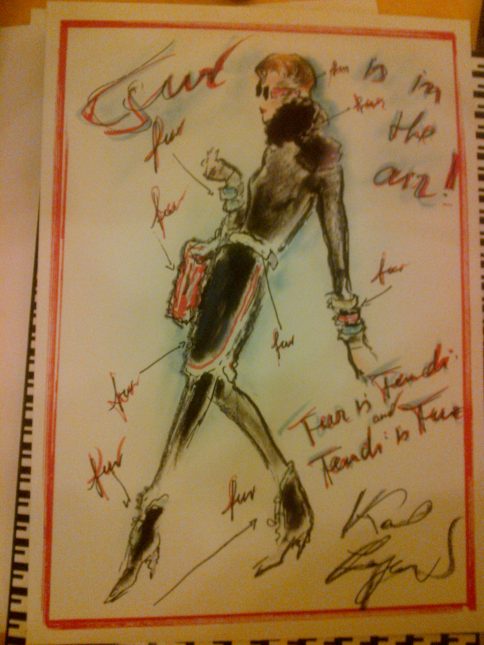 Fur
is in
the
air!
fur
fur
fur
fur
fur
fur
fur
fur
fur
fur
Fur is Fendi
and
Fendi is Fur
Karl
Lagerfeld